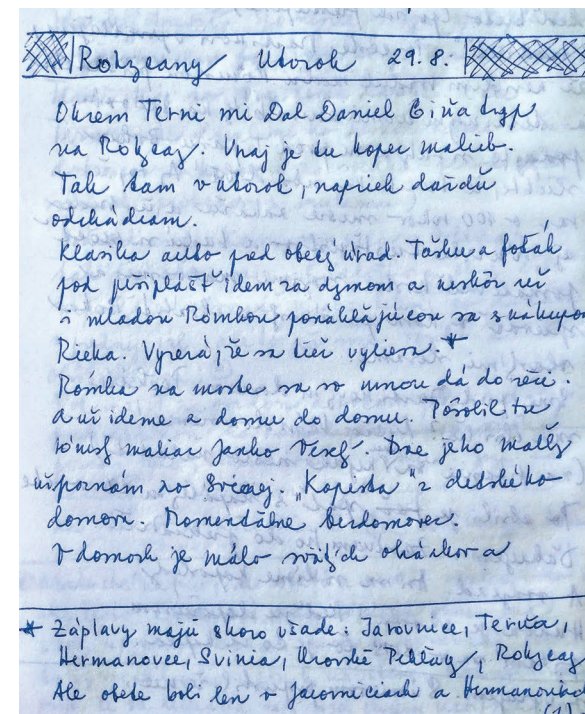 Rokycany Utorok 29.8.
Okrem Terni mi Dal Daniel Čiňa typ
na Rokycany. Vraj je tu kopec malieb.
Tak tam v utorok, napriek dažďu
odchádzam.
Klasika autbo pred obecný úrad. Tašku a foťák
pod pršiplášť idem za dymom a neskôr už
s mladou Rómkou ponáhľajúcou sa s nákupom
Rieka. Vyzerá, že sa tiež vyliera. *
Rómka na moste sa so mnou dá do reči.
A už ideme z domu do domu. Pôsobil tu
rómsky maliar Janko Veselý. Dve jeho maľby
už poznám zo Svinej. "Kopista" z detského
domova. Momentálne bezdomovec.
V domoch je málo svätých obrázkov a
* Záplavy majú skoro všade: Jarovnice, Terňa,
Hermanovce, Svinia, Uzovské Pekľany, Rokycany
Ale obete boli len v Jarovniciach a Hermanovciach